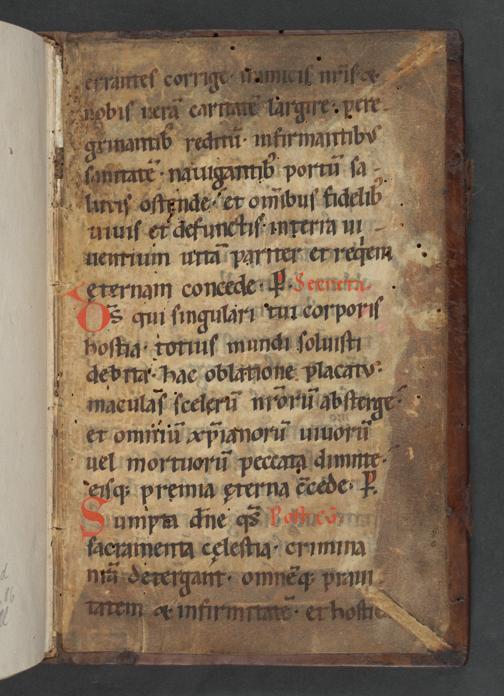 errantes corrige· inimicis nr̄is &
nobis uerā caritatē largire· pere-
grinantib; reditū· infirmantibus
sanitatē· nauigantib; portū sa-
lutis ostende· et omībus fidelib;
uiuis et defunctis· in terra ui-
uentium uitā pariter et reqiem
ęternam concede· P̱· Secreta·
Ds̄ qui singulari tui corporis
hostia· totius mundi soluisti
debita· hac oblatione placatus·
maculas scelerū nr̄orū absterge·
et omniū xp̄ianorū uiuorū
uel mortuorū peccata dimitte·
eisq; premia ęterna c̄cede· P̱·
Sumpta dn̄e qs̄ Postcō
sacramenta cęlestia· crimina
nr̄a detergant· omnēq; praui-
tatem & infirmitatē· et hostic